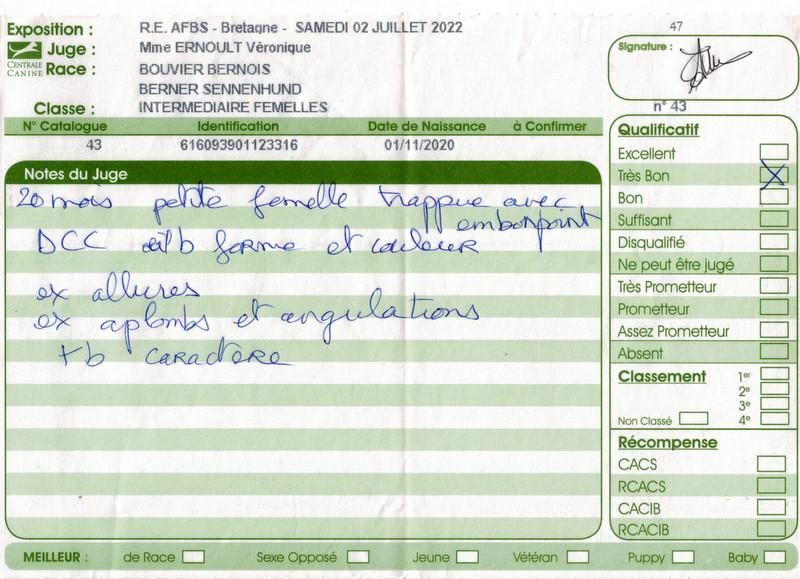 Exposition : R.E. AFBS - Bretagne - SAMEDI 02 JUILLET 2022
Juge : Mme ERNOULT Véronique
CENTRALE CANINE
Race : BOUVIER BERNOIS
BERNER SENNENHUND
Classe : INTERMEDIAIRE FEMELLES
47
Signature :
n° 43
N° Catalogue Identification Date de Naissance à Confirmer
43 616093901123316 01/11/2020
Notes du Juge
20 mois petite femelle trappue avec
embonpoint
DCC tb forme et couleur
ex allures
ex aplombs et angulations
tb caractère
Qualificatif
Excellent
Très Bon
Bon
Suffisant
Disqualifié
Ne peut être jugé
Très Prometteur
Prometteur
Assez Prometteur
Absent
Classement 1er
2e
3e
Non Classé 4e
Récompense
CACS
RCACS
CACIB
RCACIB
MEILLEUR : de Race Sexe Opposé Jeune Vétéran Puppy Baby